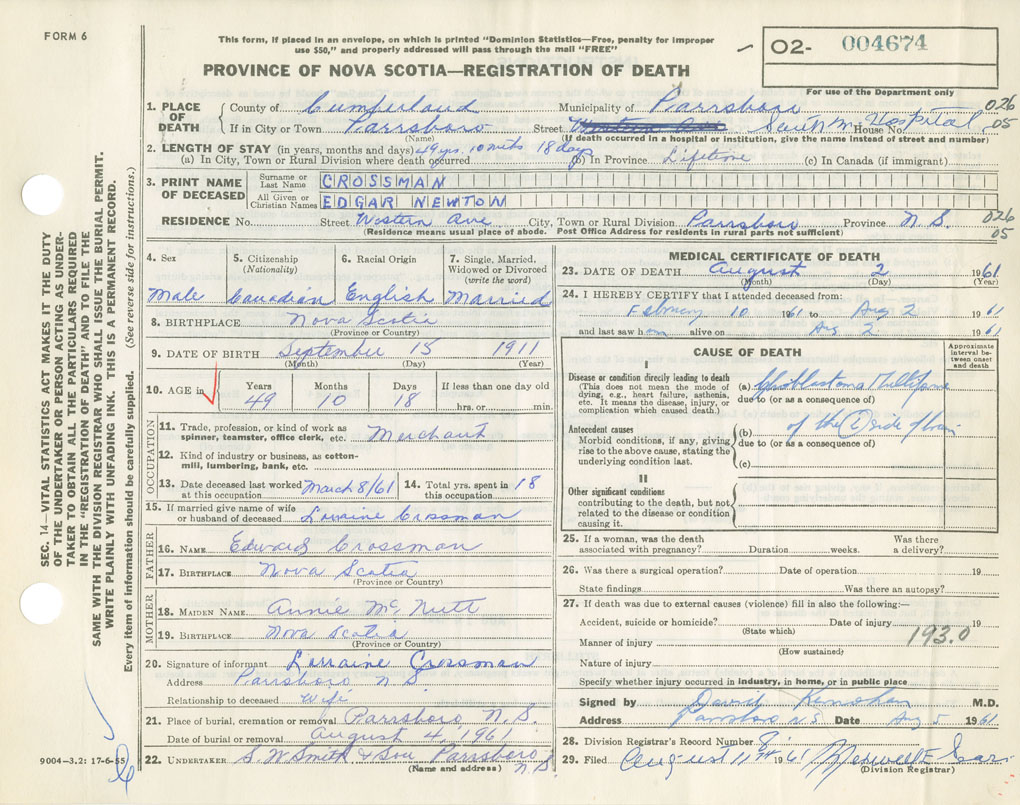 FORM 6
This form, if placed in an envelope, on which is printed "Dominion Statistics—Free, penalty for improper
use $50," and properly addressed will pass through the mail "FREE"
O2- 004674
For use of the Department only
PROVINCE OF NOVA SCOTIA—REGISTRATION OF DEATH
1. PLACE OF DEATH County of Cumberland Municipality of Parrsboro 026
If in City or Town Parrsboro Street South House No. Hospital 05
(Name) (If death occurred in a hospital or institution, give the name instead of street and number)
2. LENGTH OF STAY (in years, months and days) 49 yrs. 10 mths 18 days
(a) In City, Town or Rural Division where death occurred (b) In Province Lifetime (c) In Canada (if immigrant)
3. PRINT NAME OF DECEASED Surname or Last Name CROSSMAN
All Given or Christian Names EDGAR NEWTON
RESIDENCE No. Street Western Ave City, Town or Rural Division Parrsboro Province N.S. 026 05
(Residence means usual place of abode. Post Office Address for residents in rural parts not sufficient)
4. Sex Male
5. Citizenship (Nationality) Canadian
6. Racial Origin English
7. Single, Married, Widowed or Divorced (write the word) Married
8. BIRTHPLACE Nova Scotia
(Province or Country)
9. DATE OF BIRTH September 15 1911
(Month) (Day) (Year)
10. AGE in Years 49 Months 10 Days 18 If less than one day old hrs. or min.
OCCUPATION
11. Trade, profession, or kind of work as spinner, teamster, office clerk, etc. Merchant
12. Kind of industry or business, as cotton-mill, lumbering, bank, etc.
13. Date deceased last worked at this occupation March 8/61
14. Total yrs. spent in this occupation 18
15. If married give name of wife or husband of deceased Lorraine Crossman
FATHER
16. NAME Edward Crossman
17. BIRTHPLACE Nova Scotia
(Province or Country)
MOTHER
18. MAIDEN NAME Annie McNutt
19. BIRTHPLACE Nova Scotia
(Province or Country)
20. Signature of informant Lorraine Crossman
Address Parrsboro N S
Relationship to deceased Wife
21. Place of burial, cremation or removal Parrsboro N.S.
Date of burial or removal August 4, 1961
22. UNDERTAKER S. W Smith & Son Parrsboro N.S.
(Name and address)
MEDICAL CERTIFICATE OF DEATH
23. DATE OF DEATH August 2 1961
(Month) (Day) (Year)
24. I HEREBY CERTIFY that I attended deceased from:
February 10 1961 to Aug 2 1961
and last saw him alive on Aug 2 1961
CAUSE OF DEATH
Approximate interval between onset and death
I
Disease or condition directly leading to death
(This does not mean the mode of dying, e.g., heart failure, asthenia, etc. It means the disease, injury, or complication which caused death.)
(a) Multiforme
due to (or as a consequence of)
Antecedent causes
Morbid conditions, if any, giving rise to the above cause, stating the underlying condition last.
(b) of the side
due to (or as a consequence of)
(c)
II
Other significant conditions
contributing to the death, but not related to the disease or condition causing it.
25. If a woman, was the death associated with pregnancy? Duration weeks. Was there a delivery?
26. Was there a surgical operation? Date of operation 19
State findings Was there an autopsy?
27. If death was due to external causes (violence) fill in also the following:—
Accident, suicide or homicide? Date of injury 19
(State which)
193.0
Manner of injury
(How sustained)
Nature of injury
Specify whether injury occurred in industry, in home, or in public place
Signed by David M.D.
Address Parrsboro N.S Date Aug 5 1961
28. Division Registrar's Record Number
29. Filed August 11 1961 Maxwell E
(Division Registrar)
SEC. 14—VITAL STATISTICS ACT MAKES IT THE DUTY
OF THE UNDERTAKER OR PERSON ACTING AS UNDER-
TAKER TO OBTAIN ALL THE PARTICULARS REQUIRED
IN THE "REGISTRATION OF DEATH" AND TO FILE THE
SAME WITH THE DIVISION REGISTRAR WHO SHALL ISSUE THE BURIAL PERMIT.
WRITE PLAINLY WITH UNFADING INK. THIS IS A PERMANENT RECORD.
Every item of information should be carefully supplied. (See reverse side for instructions.)
9004—3.2: 17-6-55